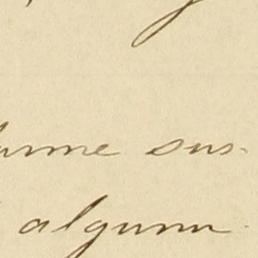 ume sus-
algum